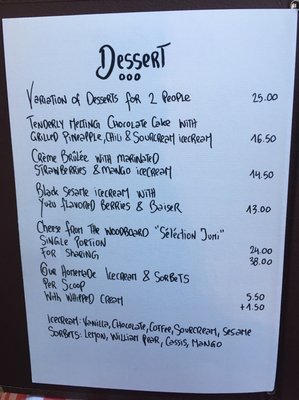 Dessert
Variation of Desserts for 2 People 25.00
Tenderly Melting Chocolate Cake with
Grilled Pineapple, Chili & Sourcream icecream 16.50
Crème Brûlée with marinated
Strawberries & Mango icecream 14.50
Black Sesame icecream with
Yuzu flavored Berries & Baiser 13.00
Cheese from the woodboard "Sélection Jumi"
Single Portion 24.00
For Sharing 38.00
Our Homemade Icecream & Sorbets
Per Scoop 5.50
With whipped cream +1.50
Icecream: Vanilla, Chocolate, Coffee, Sourcream, Sesame
Sorbets: Lemon, William Pear, Cassis, Mango